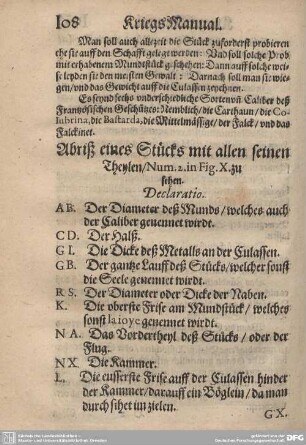 108 Kriegs Manual.
Man soll auch allezeit die Stück zuforderst probieren
ehe sie auff den Schafft gelegt werden: Und soll solche Prob
mit erhabenem Mundstück geschehen: Dann auff solche wei-
se leyden sie den meisten Gewalt: Darnach soll man sie wie-
gen/und das Gewicht auff die Culassen zeychnen.
Es seynd sechs underschiedliche Sorten uñ Caliber deß
Frantzösischen Geschützes: Nemblich/die Carthaun/die Co-
lubrina, die Bastarda, die Mittelmässige/der Falck/und das
Falckinet.
Abriß eines Stücks mit allen seinen
Theylen/Num. 2. in Fig. X. zu
sehen.
Declaratio.
A B. Der Diameter deß Munds/welches auch
der Caliber genennet wirdt.
C D. Der Halß.
G I. Die Dicke deß Metalls an der Culassen.
G B. Der gantze Lauff deß Stücks/welcher sonst
die Seele genennet wirdt.
R S. Der Diameter oder Dicke der Naben.
K. Die oberste Frise am Mundstück/welches
sonst la ioye genennet wirdt.
N A. Das Vordertheyl deß Stücks/oder der
Flug.
N X. Die Kammer.
L. Die eusserste Frise auff der Culassen hinder
der Kammer/darauff ein Böglein/da man
durch sihet im zielen.
G X.